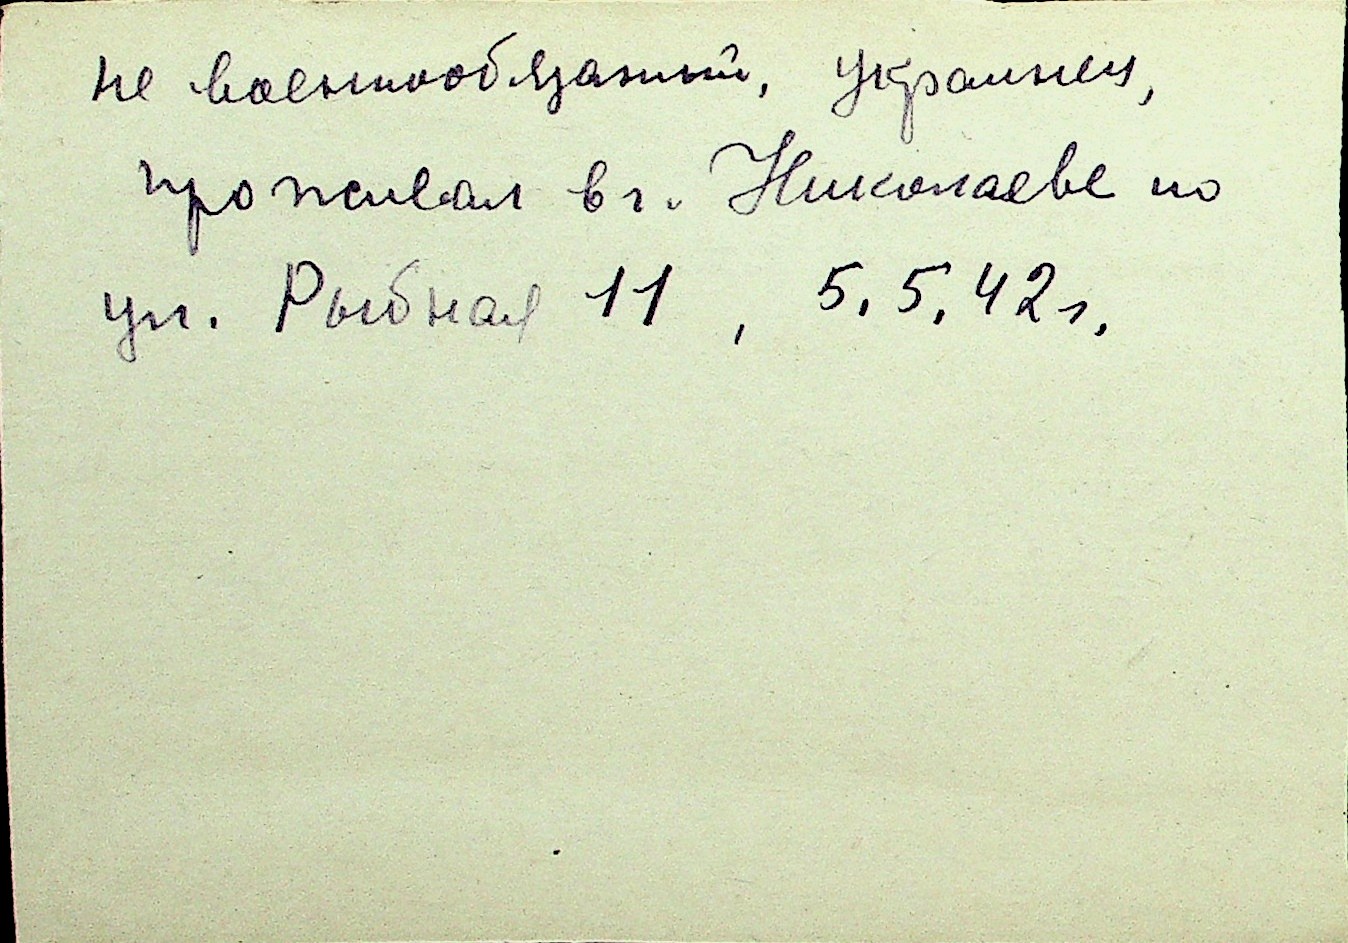 не военнообязанный, украинец,
проживал в г. Николаеве по
ул. Рыбная 11, 5.5.42 г.